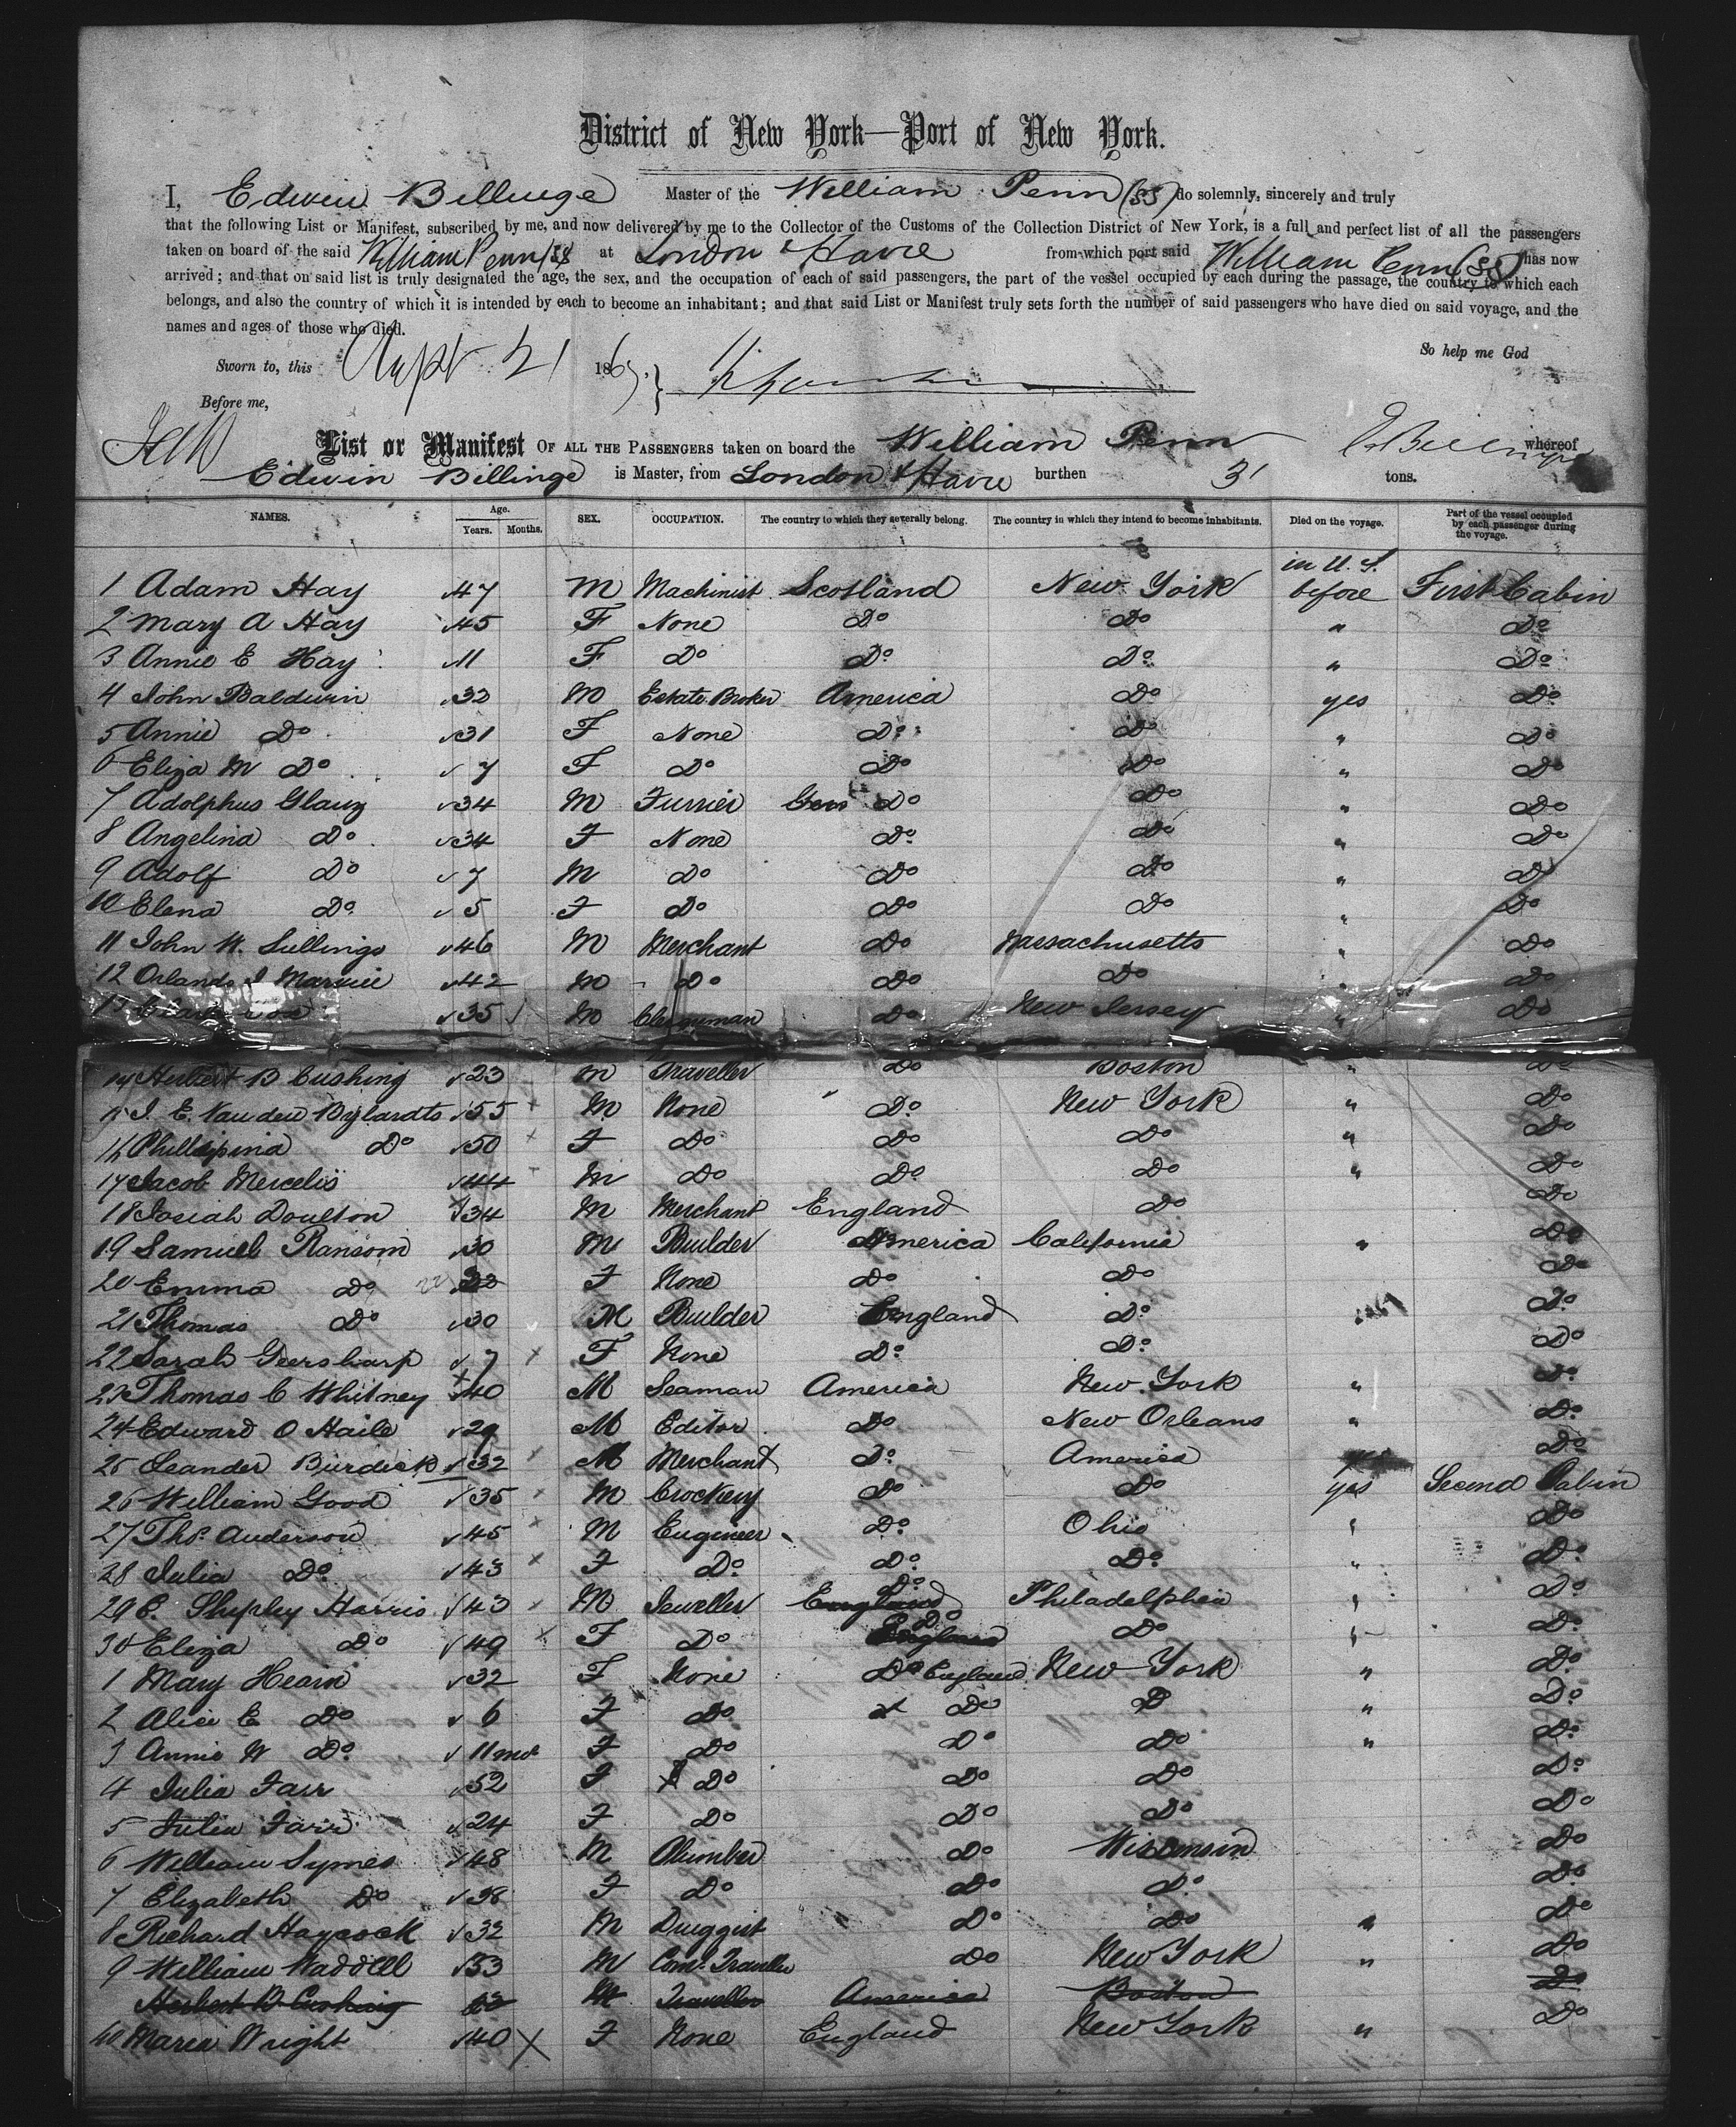 District of New York—Port of New York.
I, Edwin Billinge Master of the William Penn (SS) do solemnly, sincerely and truly
that the following List or Manifest, subscribed by me, and now delivered by me to the Collector of the Customs of the Collection District of New York, is a full and perfect list of all the passengers
taken on board of the said William Penn SS at London & Havre from which port said William Penn (SS) has now
arrived; and that on said list is truly designated the age, the sex, and the occupation of each of said passengers, the part of the vessel occupied by each during the passage, the country to which each
belongs, and also the country of which it is intended by each to become an inhabitant; and that said List or Manifest truly sets forth the number of said passengers who have died on said voyage, and the
names and ages of those who died.
So help me God
Sworn to, this 21 186
Before me,
List or Manifest OF ALL THE PASSENGERS taken on board the William Penn whereof
Edwin Billinge is Master, from London & Havre burthen tons.
NAMES. Age. Years. Months. SEX. OCCUPATION. The country to which they severally belong. The country in which they intend to become inhabitants. Died on the voyage. Part of the vessel occupied by each passenger during the voyage.
in U.S.
1 Adam Hay 47 M Machinist Scotland New York before First Cabin
2 Mary A Hay 45 F None Do Do " Do
3 Annie E Hay 11 F Do Do Do " Do
4 John Baldwin 32 M Estate Broker America Do yes Do
5 Annie Do 31 F None Do Do " Do
6 Eliza M Do 7 F Do Do Do " Do
7 Adolphus Glanz 34 M Furrier Do Do " Do
8 Angelina Do 34 F None Do Do " Do
9 Adolf Do 7 M Do Do Do " Do
10 Elena Do 5 F Do Do Do " Do
11 John W. Sullings 46 M Merchant Do Massachusetts " Do
12 Orlando I Marvie 42 M Do Do Do " Do
13 35 M Clergyman Do New Jersey " Do
14 Herbert B Cushing 23 M Traveller Do Boston " Do
15 J. E. Vanden Bylardts 55 M None Do New York " Do
16 Phillipina Do 50 F Do Do Do " Do
17 Jacob Mercelis 44 M Do Do Do " Do
18 Josiah Doulton 34 M Merchant England Do Do
19 Samuel Ransom 30 M Builder America California " Do
20 Emma Do 22 F None Do Do Do
21 Thomas Do 30 M Builder England Do Do
22 Sarah Geersharp 7 F None Do Do Do
23 Thomas C Whitney 40 M Seaman America New York " Do
24 Edward O Haile 29 M Editor Do New Orleans " Do
25 Leander Burdick 32 M Merchant Do America Do
26 William Good 35 M Crockery Do Do yes Second Cabin
27 Thos. Anderson 45 M Engineer Do Ohio " Do
28 Julia Do 43 F Do Do Do " Do
29 C. Shepley Harris 43 M Jeweller England Do Philadelphia " Do
30 Eliza Do 49 F Do England Do Do " Do
1 Mary Hearn 32 F None Do England New York " Do
2 Alice E Do 6 F Do Do D " Do
3 Annie W Do 11 mos F Do Do Do " Do
4 Julia Farr 52 F Do Do Do Do
5 Julia Farr 24 F Do Do Do Do
6 William Symes 48 M Plumber Do Wisconsin Do
7 Elizabeth Do 38 F Do Do Do Do
8 Richard Haycock 32 M Druggist Do Do " Do
9 William Waddell 53 M Coml. Traveller Do New York " Do
Herbert B Cushing 23 M Traveller America Boston Do
40 Maria Wright 40 F None England New York " Do